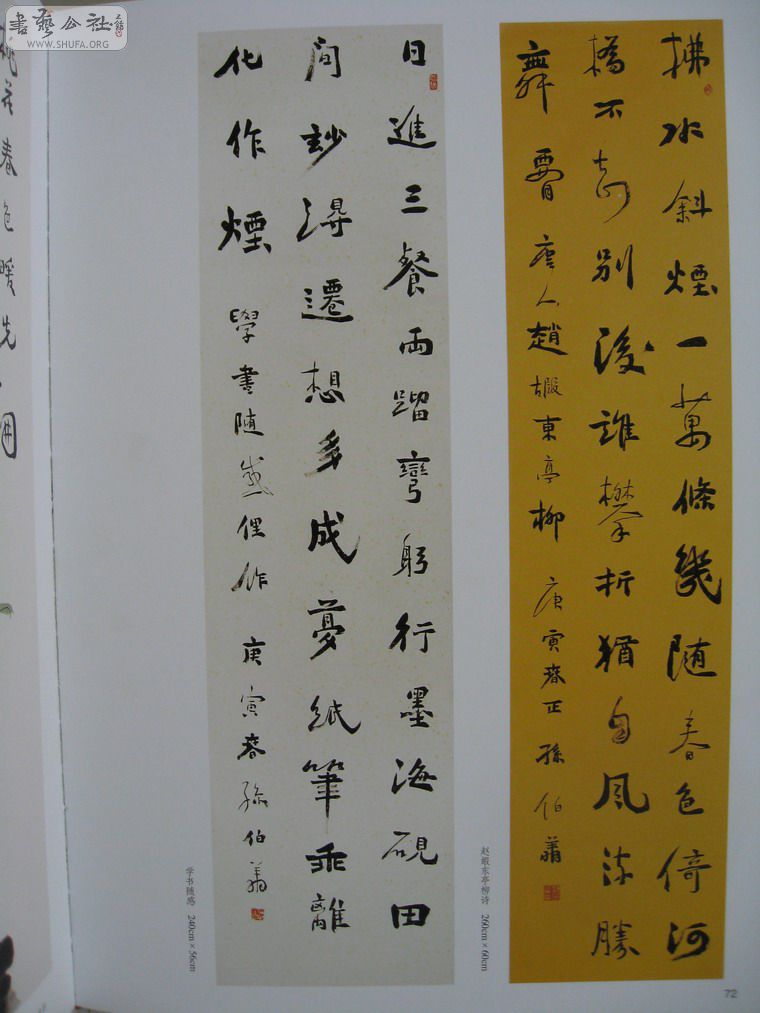 書藝公社
WWW.SHUFA.ORG
拂水斜煙一萬條幾隨春色倚河
橋不知別後誰攀折猶自風流勝
舞腰 唐人趙嘏東亭柳 庚寅春正 孫伯翔
赵嘏东亭柳诗 260cm×60cm
日進三餐兩蹓彎躬行墨海硯田
間妙得遷想多成夢紙筆乖離
化作煙 學書隨感俚作 庚寅春孫伯翔
学书随感 240cm×56cm
花春色暖先開
72